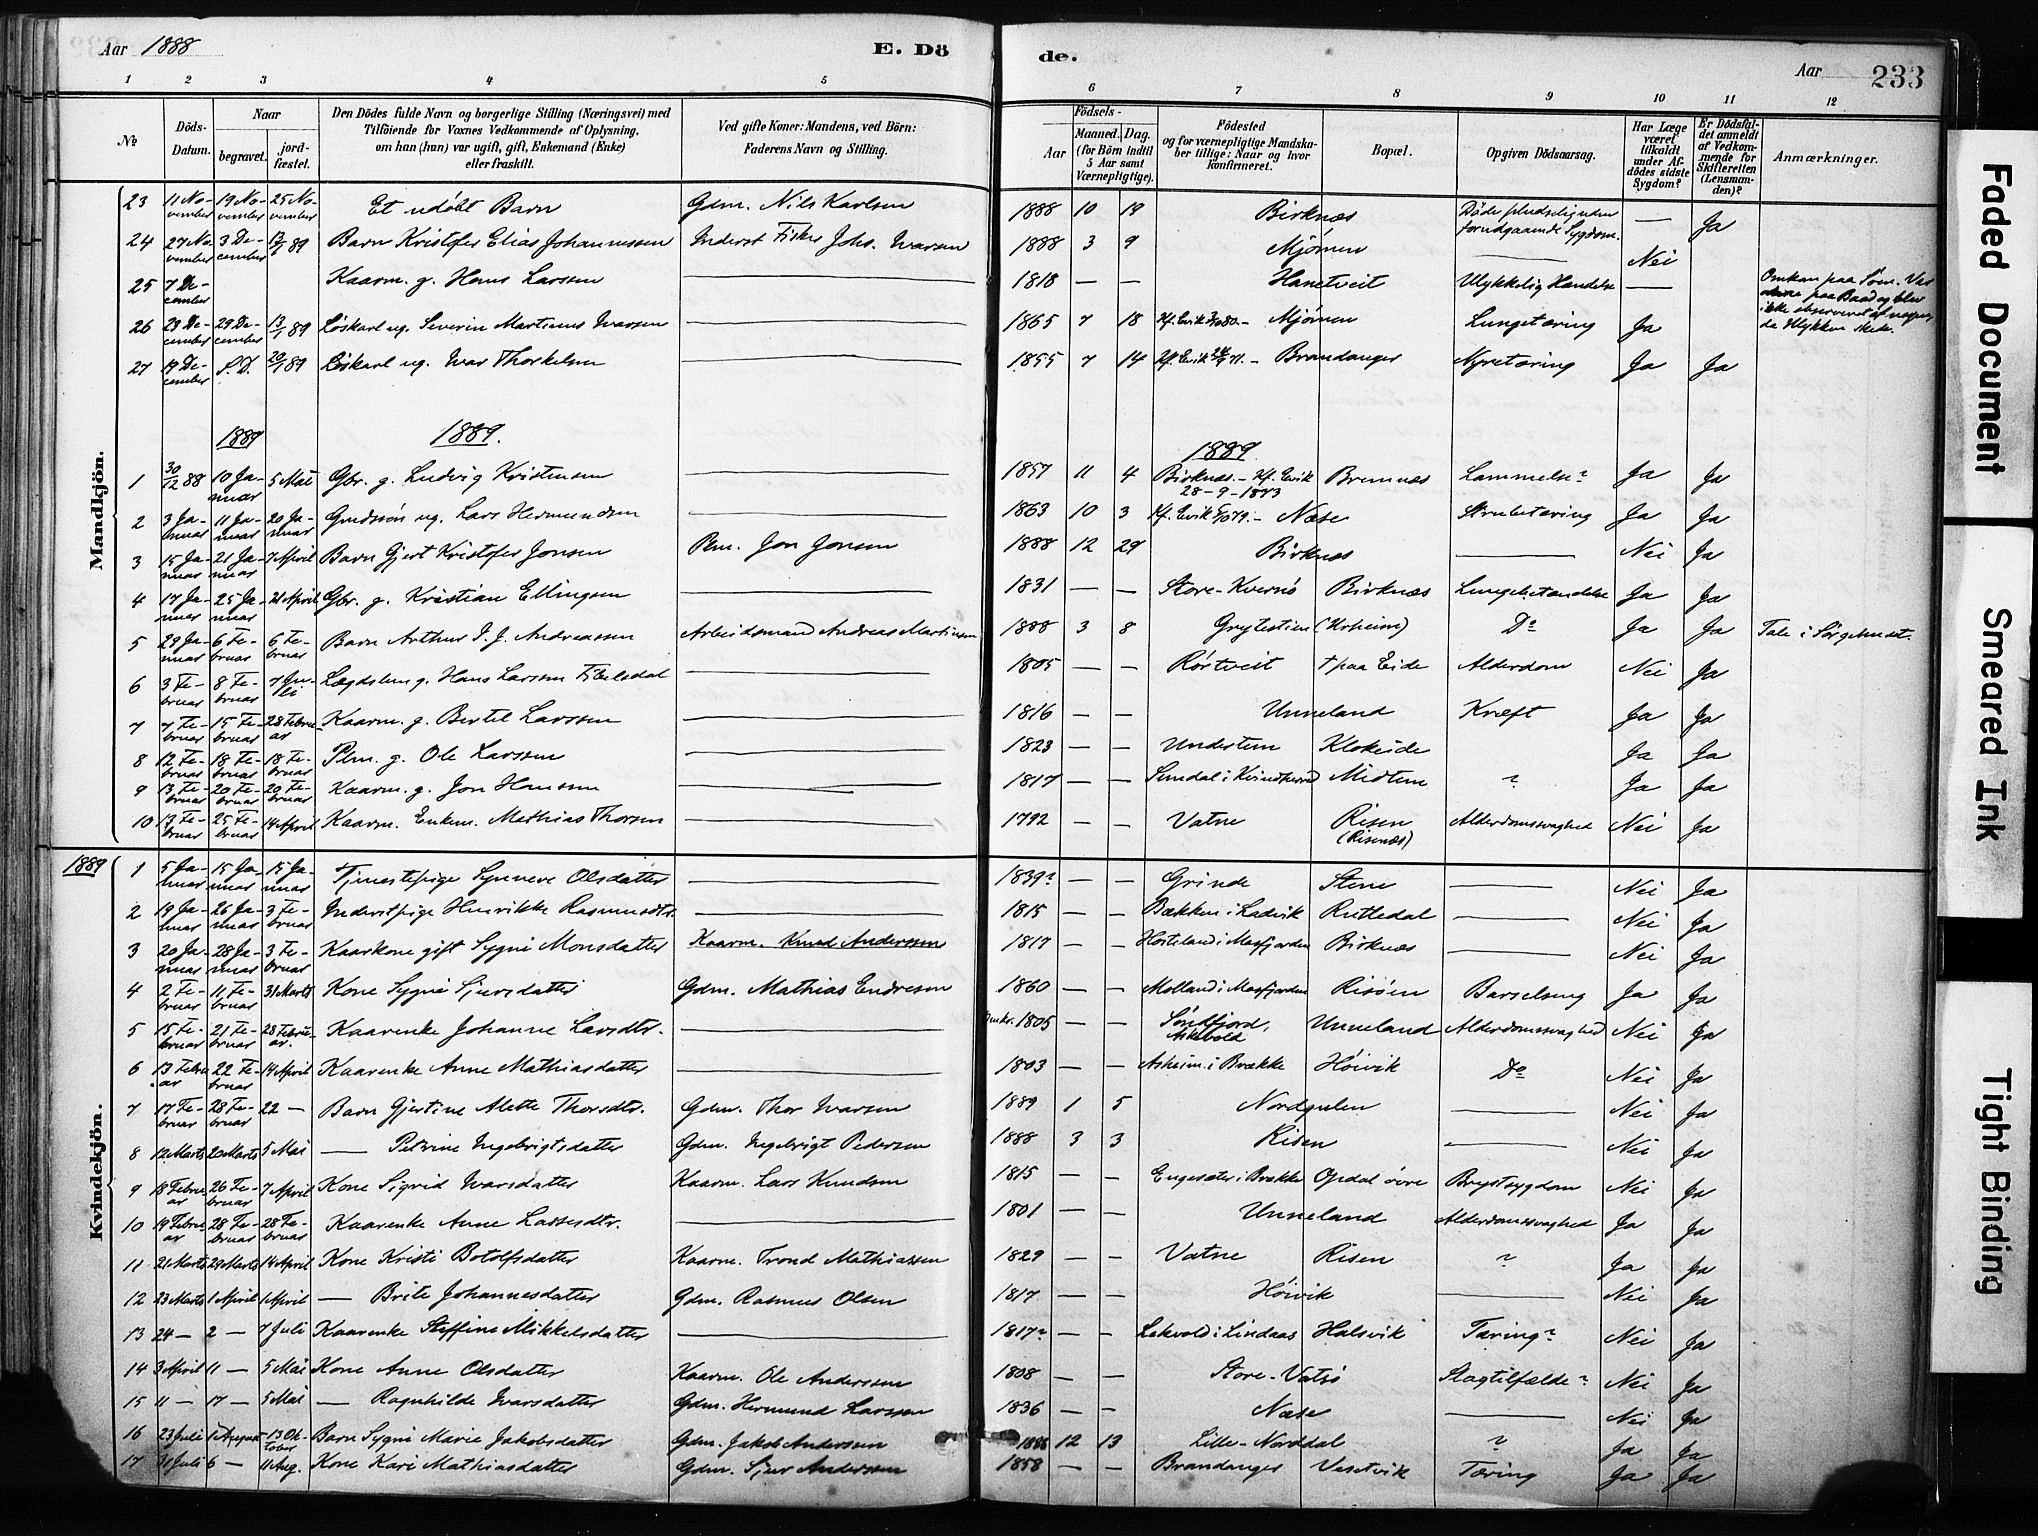 Aar 1888 E. Dö de. Aar 233
1 2 3 4 5 6 7 8 9 10 11 12
No Döds-Datum. Naar begravet. jord-fæstet. Den Dödes fulde Navn og borgerlige Stilling (Næringsvei) med Tilföiende for Voxnes Vedkommende af Oplysning, om han (hun) var ugift, gift, Enkemand (Enke) eller fraskilt. Ved gifte Koner: Mandens, ved Börn: Faderens Navn og Stilling. Födsels- Aar Maaned. Dag. (for Börn indtil 5 Aar samt Værnepligtige). Födested og for værnepligtige Mandskaber tillige: Naar og hvor konfirmeret. Bopæl. Opgiven Dödsaarsag. Har Læge været tilkaldt under Afdödes sidste Sygdom? Er Dödsfaldet anmeldt af Vedkommende for Skifteretten (Lensmanden)? Anmærkninger.
Mandkjön.
23 11 November 19 November 25 November Et udöbt Barn Gdm. Nils Karlsen 1888 10 19 Birknæs Døde pludselig uden forudgaaende Sygdom. — Ja
24 27 November 3 December 13/1 89 Barn Kristofer Elias Johannessen Inderst Fisker Johs. Ivarsen 1888 3 9 Mjömen — Nei
25 7 December Kaarm. g. Hans Larssen — 1818 — — Hanetveit Ulykkelig Hændelse — Omkom paa Söen. Var alene paa Baad og blev ikke observeret af nogen, da Ulykken skede.
26 23 December 29 December 13/1 89 Löskarl ug. Severin Martinus Ivarsen — 1865 7 18 Kf. Evik 3/10 80. — Mjömen Lungetæring Ja
27 19 December S. D. 20/1 89 Löskarl ug. Ivar Thorkelsen — 1855 7 14 Kf. Evik 71. — Brandanger Nyretæring Ja Ja
1889 1889. 1889
1 30/12 88 10 Januar 5 Mai Gbr. g. Ludvig Kristensen — 1857 11 4 Birknæs. — Kf. Evik 28-9-1873 Bremnæs Lammelse? Ja Ja
2 3 Januar 11 Januar 20 Januar Grdssön ug. Lars Hermundsen — 1863 10 3 Kf. Evik 5/10 79. — Næse Strubetæring Ja Ja
3 15 Januar 21 Januar 7 April Barn Gjert Kristofer Jonsen Plm. Jon Jonsen 1888 12 29 Birknæs — Nei Ja
4 17 Januar 25 Januar 21 April Gbr. g. Kristian Ellingsen — 1831 — — Store-Kversö Birknæs Lungebetændelse Ja Ja
5 29 Januar 6 Februar 6 Februar Barn Arthur I. J. Andreassen Arbeidsmand Andreas Martinsen 1888 3 8 Grytestien (Urheim) Do Ja Ja Tale i Sörgehuset.
6 3 Februar 8 Februar 7 Juli Lægdslem g. Hans Larssen Fibelsdal — 1805 — — Rörtveit † paa Eide Alderdom Nei Ja
7 7 Februar 15 Februar 28 Februar Kaarm. g. Bertel Larssen — 1816 — — Unneland Kræft Ja Ja
8 12 Februar 18 Februar 18 Februar Plm. g. Ole Larssen — 1823 — — Undertun Klokeide Ja Ja
9 13 Februar 20 Februar 20 Februar Kaarm. g. Jon Hanssen — 1817 — — Sundal i Kvindherred Midtun ? Ja Ja
10 13 Februar 25 Februar 14 April Kaarm. Enkem. Mathias Thorsen — 1792 — — Vatne Risen (Risenæs) Alderdomssvaghed Nei Ja
1889
Kvindekjön.
1 5 Januar 15 Januar 15 Januar Tjenestepige Synneve Olsdatter — 1839? — — Grinde Stene — Nei Ja
2 19 Januar 26 Januar 3 Februar Inderstpige Henrikke Rasmusdtr. — 1815 — — Bækken i Ladvik Rutledal — Nei Ja
3 20 Januar 28 Januar 3 Februar Kaarkone gift Sygni Monsdatter Kaarm. Knud Anderssen 1817 — — Hosteland i Masfjorden Birknæs — Nei Ja
4 2 Februar 11 Februar 31 Marts Kone Sygni Sjursdatter Gdm. Mathias Endresen 1860 — — Molland i Masfjorden Risöen Barselseng Ja Ja
5 15 Februar 21 Februar 28 Februar. Kaarenke Johanne Larsdtr. — Omkr. 1805 — — Söndfjord, Askevold Unneland Alderdomssvaghed Nei Ja
6 13 Februar 22 Februar 14 April Kaarenke Anne Mathiasdatter — 1803 — — Asheim i Brække Höivik Do Nei Ja
7 17 Februar 28 Februar 22 — Barn Gjertine Alette Thorsdtr. Gdm. Thor Ivarsen 1889 1 5 Nordgulen — Nei Ja
8 12 Marts 20 Marts 5 Mai — Petrine Ingebrigtsdatter Gdm. Ingebrigt Pedersen 1888 3 3 Risen — Nei Ja
9 18 Februar 26 Februar 7 April Kone Sigrid Ivarsdatter Kaarm. Lars Knudsen 1815 — — Engesæter i Brække Opdal övre Brystsygdom Nei Ja
10 19 Februar 28 Februar 28 Februar Kaarenke Anne Lassesdtr. — 1801 — — Unneland Alderdomssvaghed Ja Ja
11 21 Marts 29 Marts 14 April Kone Kristi Botolfsdatter Kaarm. Trond Mathiassen 1829 — — Vatne Risen ? Ja Ja
12 23 Marts 1 April 1 April — Brite Johannesdatter Gdm. Rasmus Olsen 1817 — — Höivik — Nei Ja
13 24 — 2 — 7 Juli Kaarenke Steffine Mikkelsdatter — 1817? — — Lekvold i Lindaas Halsvik Tæring? Nei Ja
14 3 April 11 — 5 Mai Kone Anne Olsdatter Kaarm. Ole Anderssen 1808 — — Store-Vatsö Slagtilfælde? Nei Ja
15 11 — 17 — 5 Mai — Ragnhilde Ivarsdatter Gdm. Hermund Larssen 1836 — — Næse — Nei Ja
16 23 Juli 1 August 13 Oktober Barn Sygni Marie Jakobsdatter Gdm. Jakob Andersen 1888 12 13 Lille-Norddal ? Ja Ja
17 31 Juli 6 — 11 Aug. Kone Kari Mathiasdatter Gdm. Sjur Anderssen 1858 — — Brandanger Vesetvik Tæring Ja Ja
Faded Document
Smeared Ink
Tight Binding